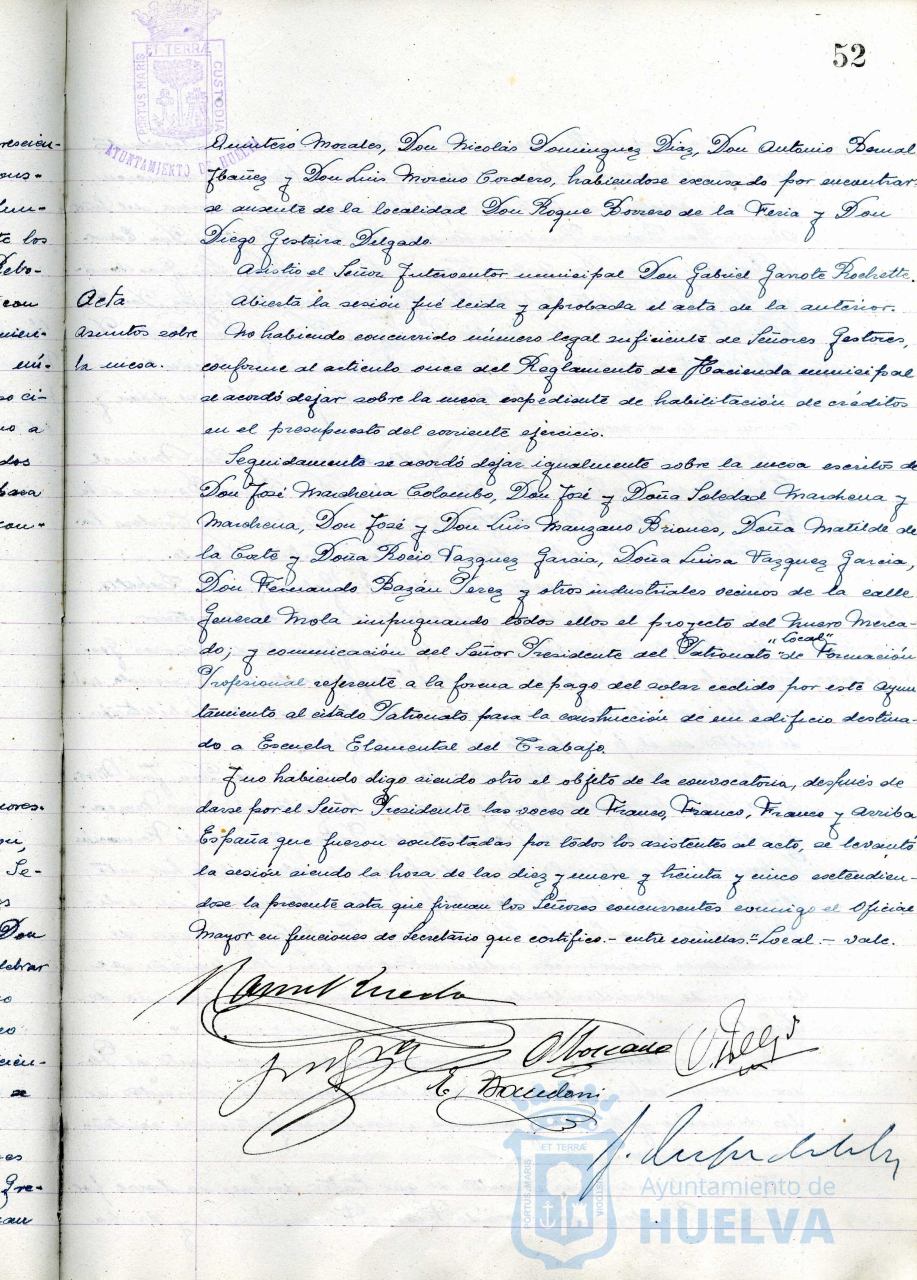 52
ET TERRÆ
PORTUS MARIS
CUSTODIA
AYUNTAMIENTO DE HUELVA
Quintero Morales, Don Nicolás Dominguez Diaz, Don Antonio Bernal
Ibañez y Don Luis Moreno Cordero, habiendose excusado por encontrar-
se ausente de la localidad Don Roque Borrero de la Feria y Don
Diego Gesteira Delgado.
Asistio el Señor Interventor municipal Don Gabriel Garrote Rochette.
Acta
Abierta la sesión fué leida y aprobada el acta de la anterior.
Asuntos sobre
la mesa.
No habiendo concurrido número legal suficiente de Señores Gestores,
conforme al articulo once del Reglamento de Hacienda municipal
se acordó dejar sobre la mesa expediente de habilitación de créditos
en el presupuesto del corriente ejercicio.
Seguidamente se acordó dejar igualmente sobre la mesa escritos de
Don José Marchena Colombo, Don José y Doña Soledad Marchena y
Marchena, Don José y Don Luis Manzano Briones, Doña Matilde de
la Corte y Doña Rocio Vazquez Garcia, Doña Luisa Vazquez Garcia,
Don Fernando Bazán Perez y otros industriales vecinos de la calle
General Mola impugnando todos ellos el proyecto del Nuevo Merca-
do; y comunicación del Señor Presidente del Patronato "local" de Formación
Profesional referente a la forma de pago del solar cedido por este Ayun
tamiento al citado Patronato para la construcción de un edificio destina-
do a Escuela Elemental del Trabajo.
Y no habiendo digo siendo otro el objeto de la convocatoria, después de
darse por el Señor Presidente las voces de Franco, Franco, Franco y Arriba
España que fueron contestadas por todos los asistentes al acto, se levantó
la sesión siendo la hora de las diez y nueve y treinta y cinco extendien-
dose la presente acta que firman los Señores concurrentes conmigo el Oficial
Mayor en funciones de Secretario que certifico.- entre comillas."Local.- vale.
ET TERRÆ
PORTUS MARIS
CUSTODIA
Ayuntamiento de
HUELVA